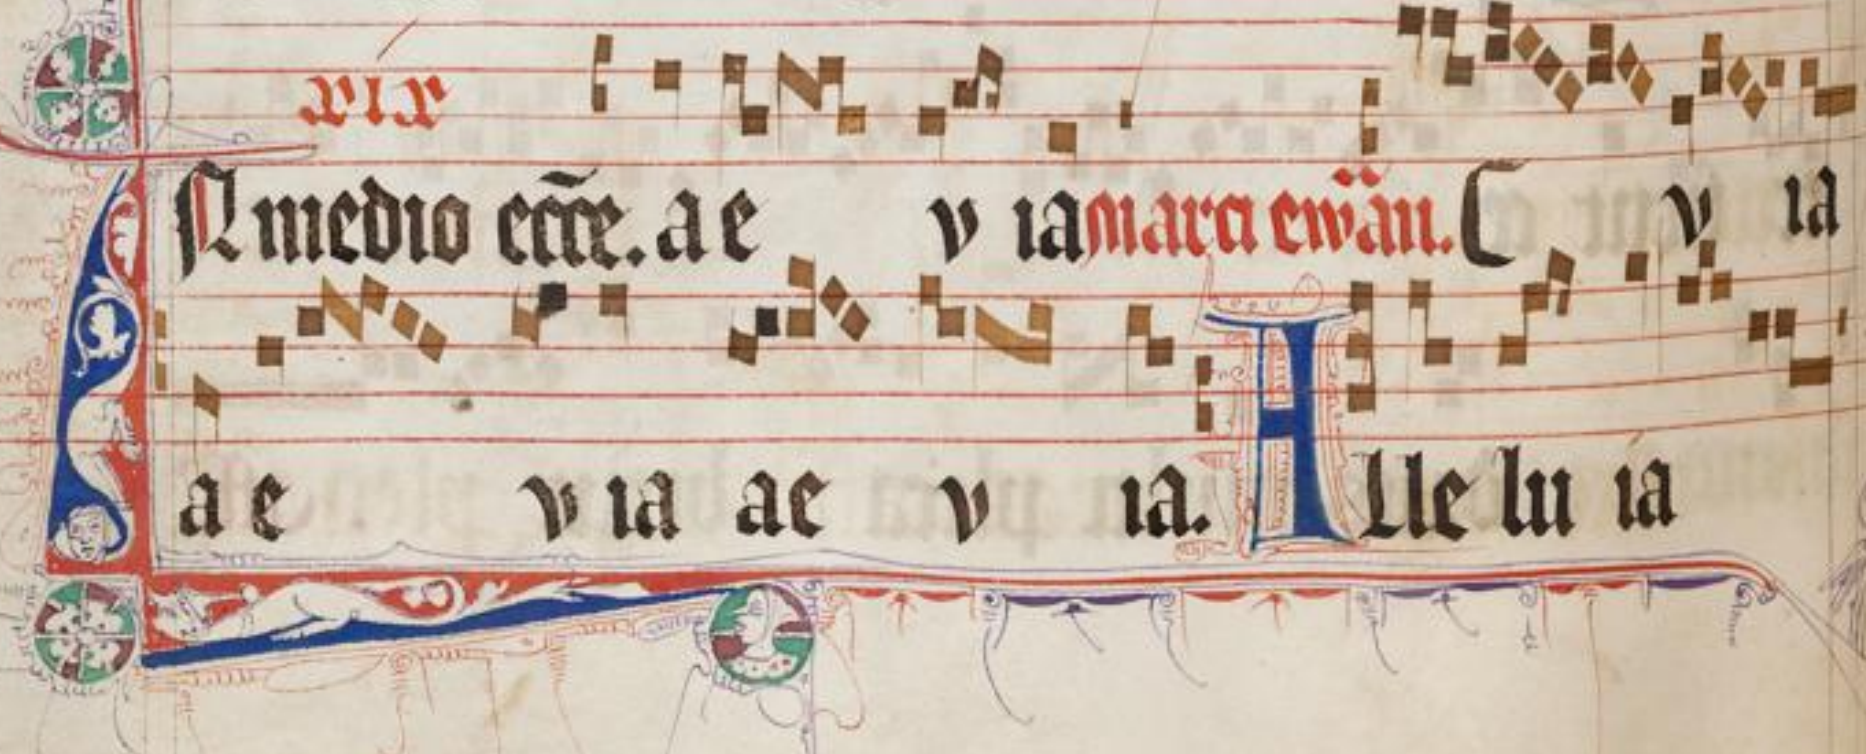 xix
In medio eccē. a e v ia marci ewāū. C v ia
a e v ia ae v ia. Alle lu ia